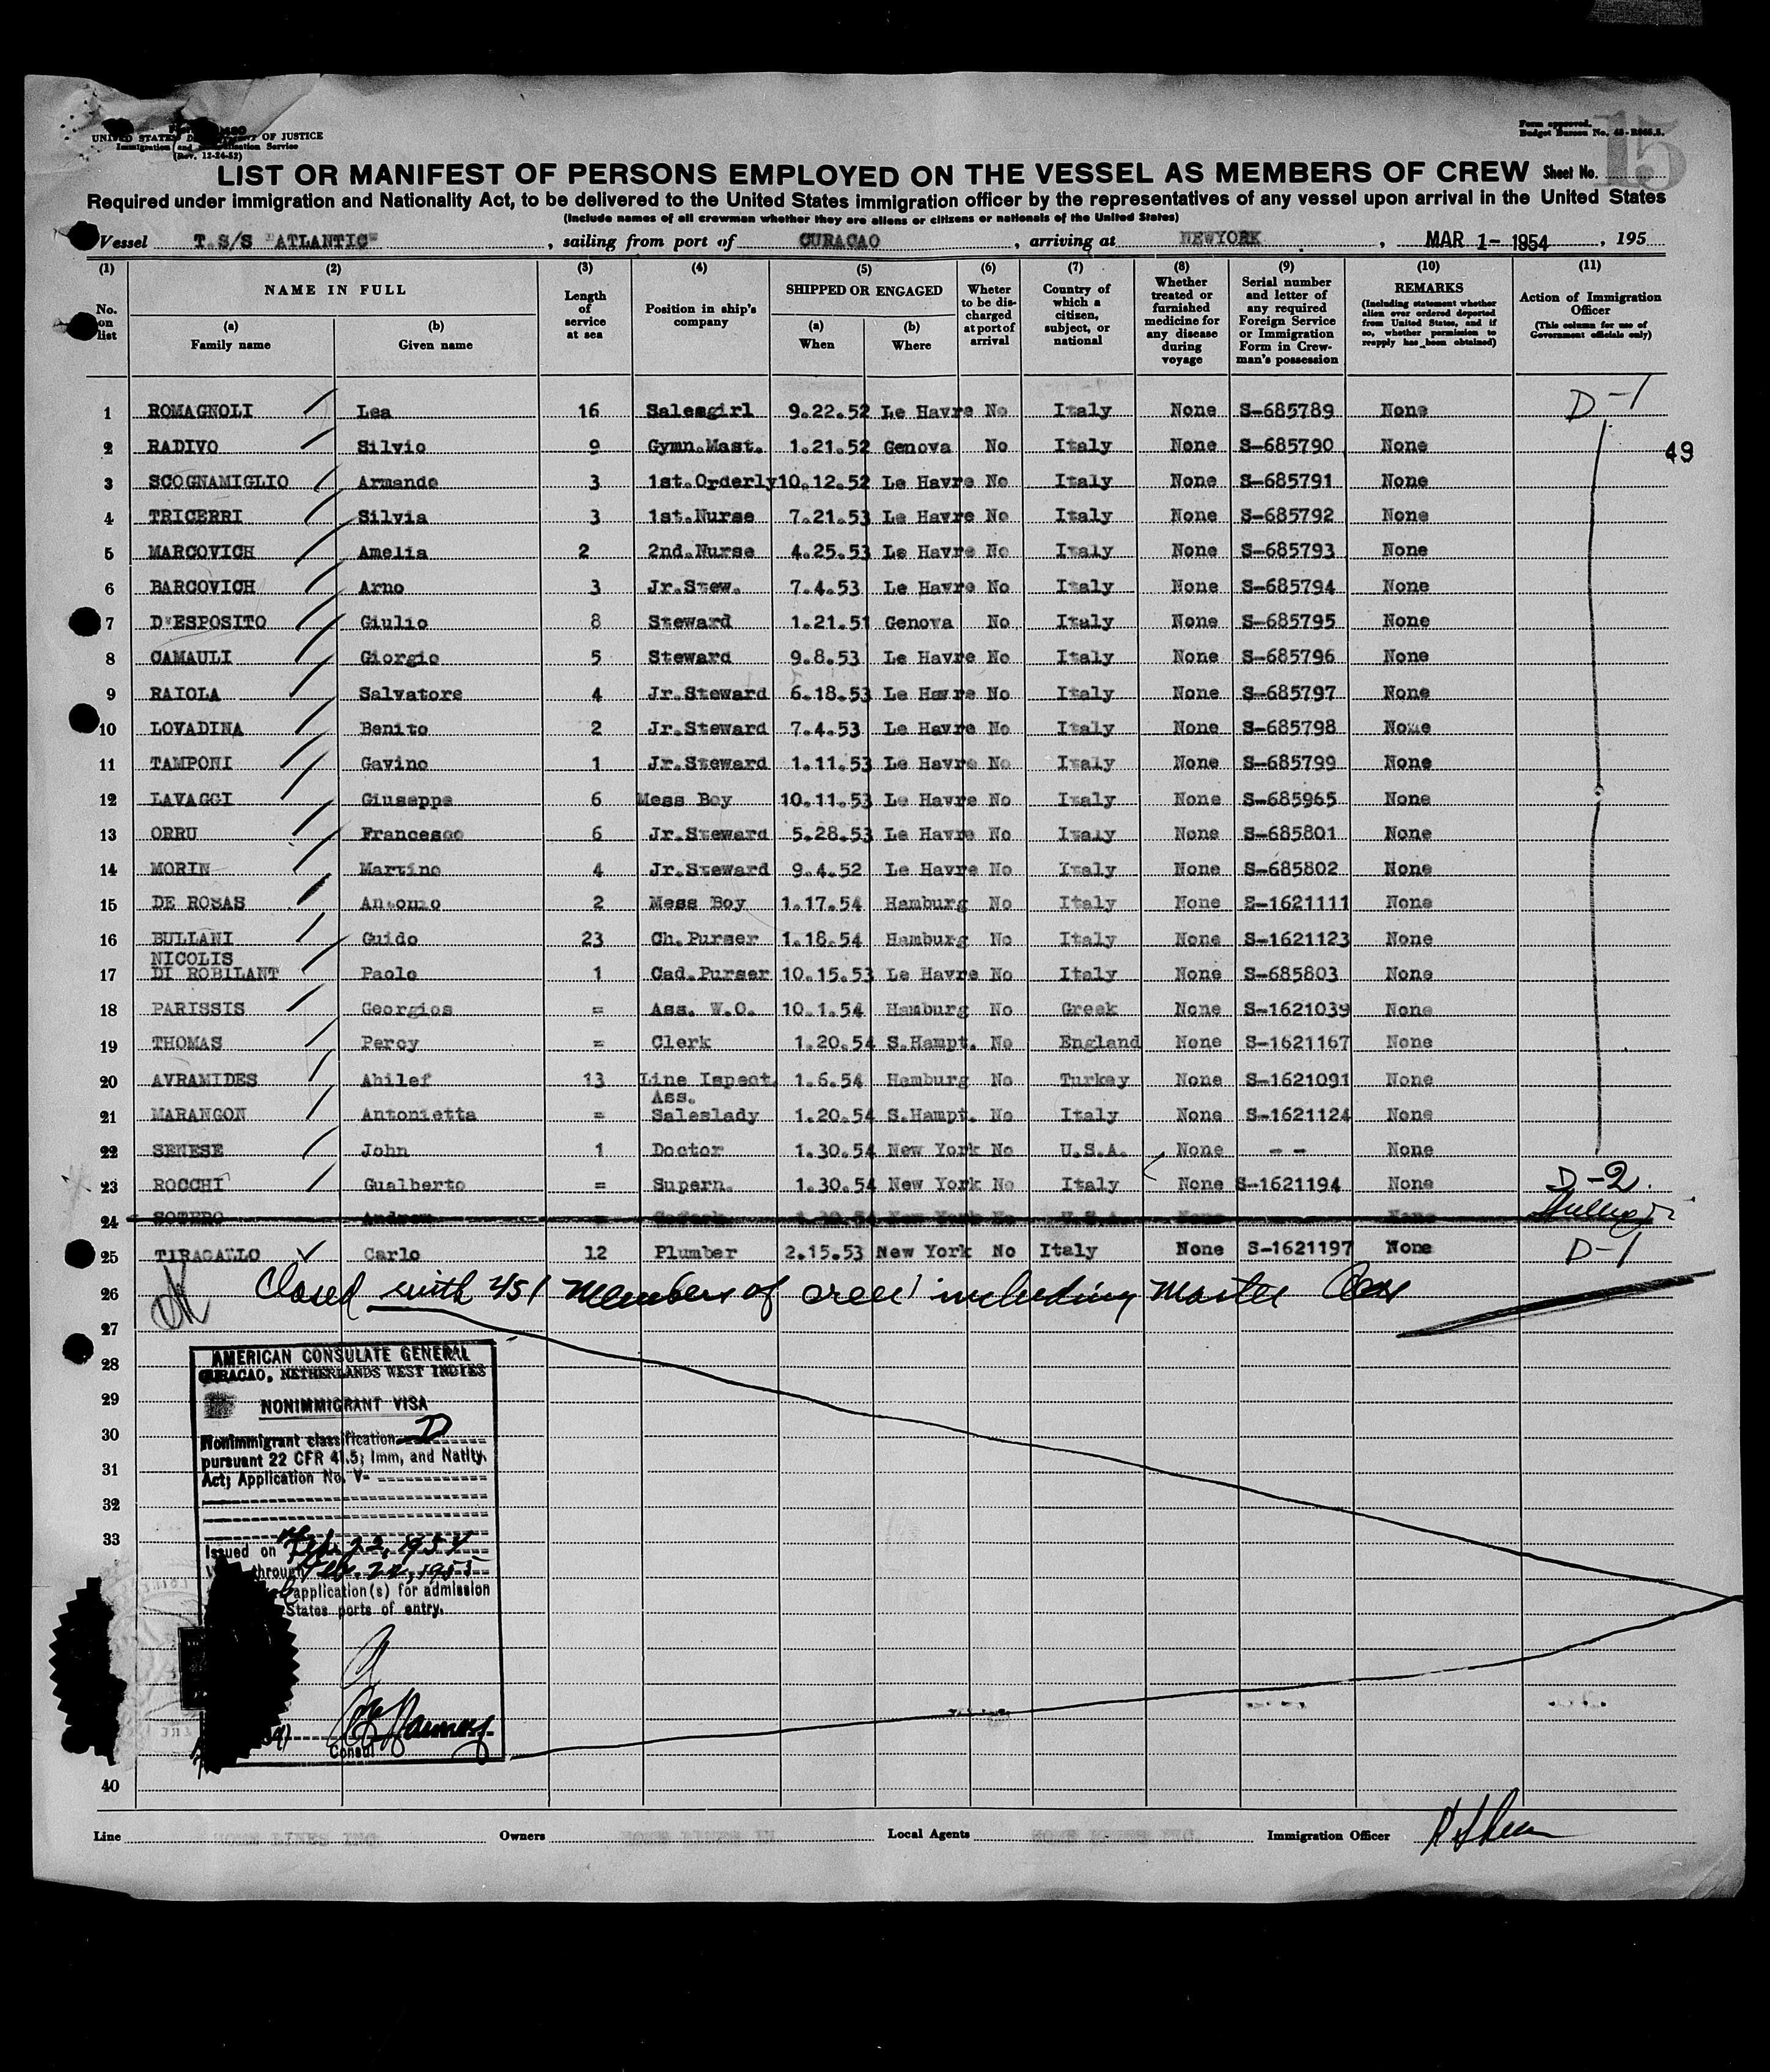 UNITED STATES DEPARTMENT OF JUSTICE
Immigration and Naturalization Service
(Rev. 12-24-52)
Form approved.
Budget Bureau No. 43-R065.5.
15
LIST OR MANIFEST OF PERSONS EMPLOYED ON THE VESSEL AS MEMBERS OF CREW Sheet No.
Required under immigration and Nationality Act, to be delivered to the United States immigration officer by the representatives of any vessel upon arrival in the United States
(Include names of all crewman whether they are aliens or citizens or nationals of the United States)
Vessel T.S/S "ATLANTIC", sailing from port of CURACAO, arriving at NEWYORK, MAR 1-1954, 195
(1) (2) (3) (4) (5) (6) (7) (8) (9) (10) (11)
No. on list
NAME IN FULL
(a) Family name
(b) Given name
Length of service at sea
Position in ship's company
SHIPPED OR ENGAGED
(a) When
(b) Where
Wheter to be discharged at port of arrival
Country of which a citizen, subject, or national
Whether treated or furnished medicine for any disease during voyage
Serial number and letter of any required Foreign Service or Immigration Form in Crewman's possession
REMARKS
(Including statement whether alien ever ordered deported from United States, and if so, whether permission to reapply has been obtained)
Action of Immigration Officer
(This column for use of Government officials only)
1 ROMAGNOLI Lea 16 Salesgirl 9.22.52 Le Havre No Italy None S-685789 None D-1
2 RADIVO Silvio 9 Gymn.Mast. 1.21.52 Genova No Italy None S-685790 None 49
3 SCOGNAMIGLIO Armando 3 1st.Orderly 10.12.52 Le Havre No Italy None S-685791 None
4 TRICERRI Silvia 3 1st.Nurse 7.21.53 Le Havre No Italy None S-685792 None
5 MARCOVICH Amelia 2 2nd.Nurse 4.25.53 Le Havre No Italy None S-685793 None
6 BARCOVICH Arno 3 Jr.Stew. 7.4.53 Le Havre No Italy None S-685794 None
7 D'ESPOSITO Giulio 8 Steward 1.21.51 Genova No Italy None S-685795 None
8 CAMAULI Giorgio 5 Steward 9.8.53 Le Havre No Italy None S-685796 None
9 RAIOLA Salvatore 4 Jr.Steward 6.18.53 Le Havre No Italy None S-685797 None
10 LOVADINA Benito 2 Jr.Steward 7.4.53 Le Havre No Italy None S-685798 None
11 TAMPONI Gavino 1 Jr.Steward 1.11.53 Le Havre No Italy None S-685799 None
12 LAVAGGI Giuseppe 6 Mess Boy 10.11.53 Le Havre No Italy None S-685965 None
13 ORRU Francesco 6 Jr.Steward 5.28.53 Le Havre No Italy None S-685801 None
14 MORIN Martino 4 Jr.Steward 9.4.52 Le Havre No Italy None S-685802 None
15 DE ROSAS Antonio 2 Mess Boy 1.17.54 Hamburg No Italy None S-1621111 None
16 BULLANI Guido 23 Ch.Purser 1.18.54 Hamburg No Italy None S-1621123 None
NICOLIS
17 DI ROBILANT Paolo 1 Cad.Purser 10.15.53 Le Havre No Italy None S-685803 None
18 PARISSIS Georgios = Ass. W.O. 10.1.54 Hamburg No Greek None S-1621039 None
19 THOMAS Percy = Clerk 1.20.54 S.Hampt. No England None S-1621167 None
20 AVRAMIDES Ahilef 13 Line Ispect. 1.6.54 Hamburg No Turkey None S-1621091 None
Ass.
21 MARANGON Antonietta = Saleslady 1.20.54 S.Hampt. No Italy None S-1621124 None
22 SENESE John 1 Doctor 1.30.54 New York No U.S.A. None - - None
23 ROCCHI Gualberto = Supern. 1.30.54 New York No Italy None S-1621194 None D-2.
24 SOTERO Andrew = 1.30.54 New York No U.S.A. None None
25 TIRAGALLO Carlo 12 Plumber 2.15.53 New York No Italy None S-1621197 None D-1
26 OK Closed with 451 members of crew including Master
27
28
29
30
31
32
33
AMERICAN CONSULATE GENERAL
CURACAO, NETHERLANDS WEST INDIES
NONIMMIGRANT VISA
Nonimmigrant classification D
pursuant 22 CFR 41.5; Imm, and Natlty.
Act; Application No. V-
Issued on Feb. 23, 1954
through Feb. 22, 1955
application(s) for admission
States ports of entry.
Consul
40
Line HOME LINES INC. Owners Local Agents Immigration Officer